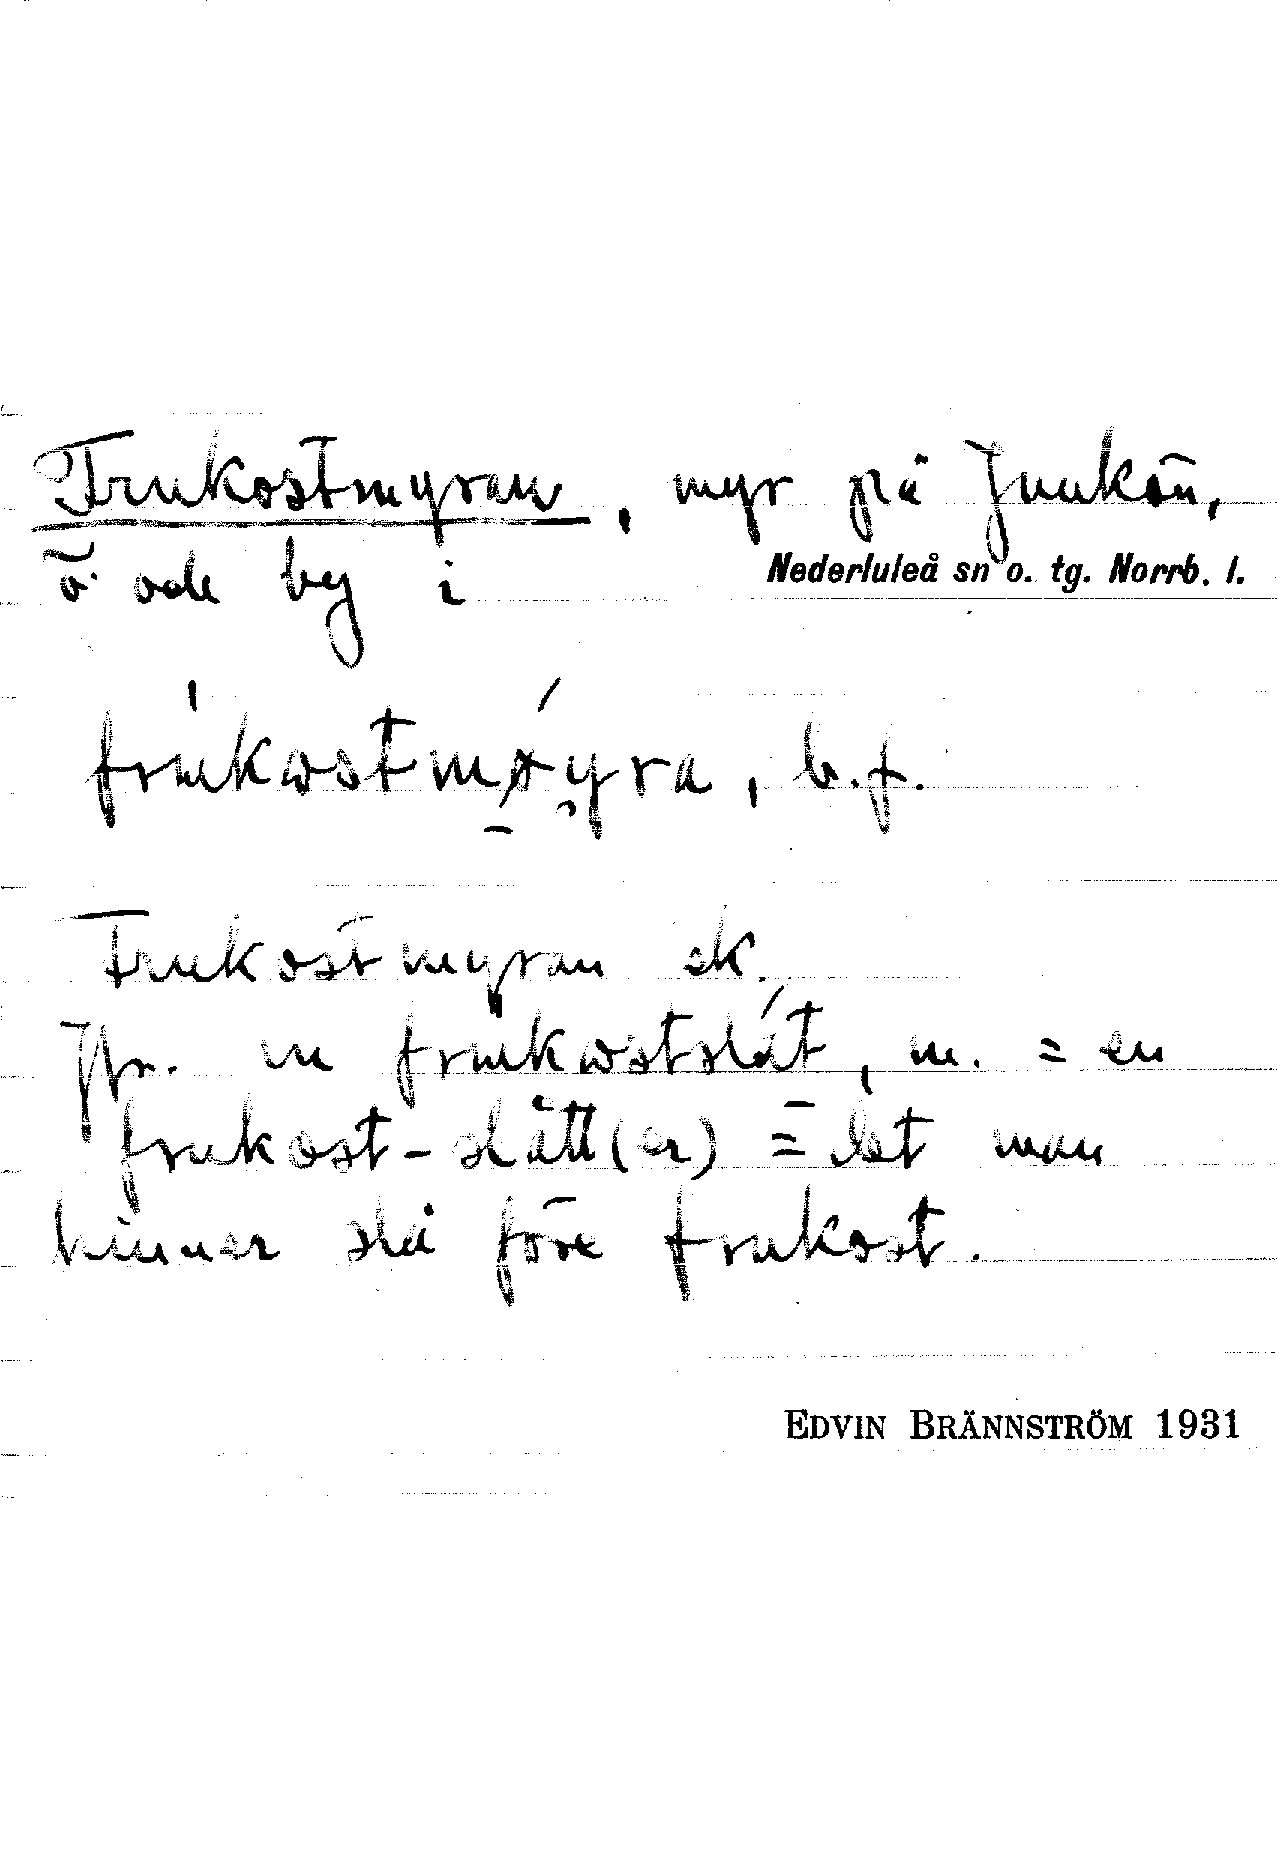 Frukostmyran, myr på Junkön,
ö ock by i Nederluleå sn o. tg. Norrb. l.
frúkostmǿyra, b.f.
Frukostmyran ek.
Jfr. en frukostslát, m. = en
frukost-slått(er) = det man
hinner slå före frukost.
EDVIN BRÄNNSTRÖM 1931